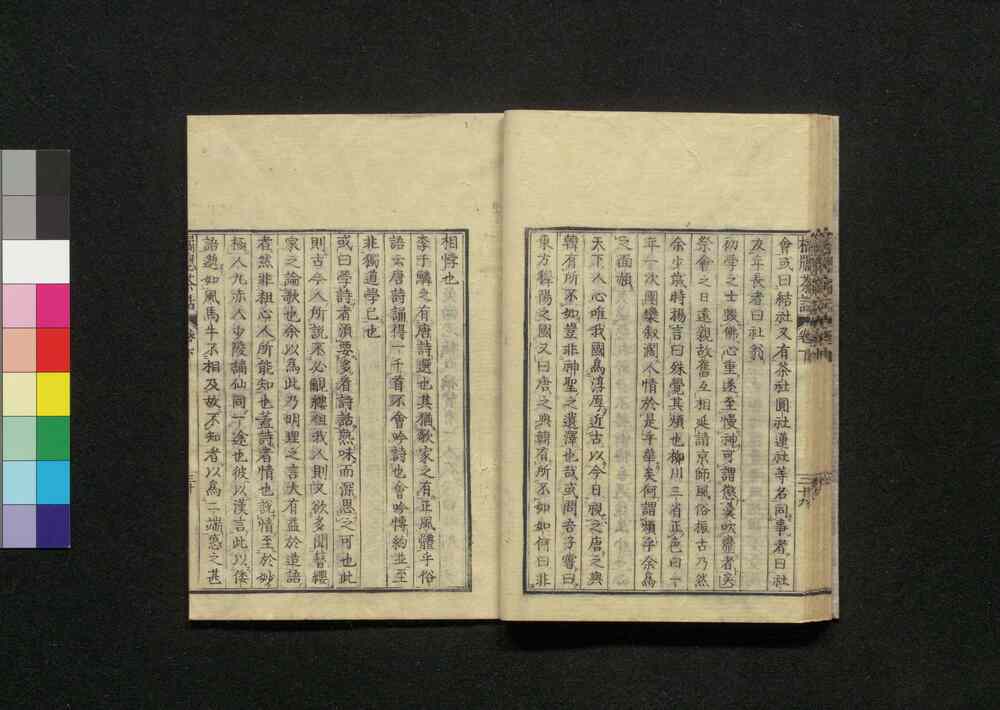 會或曰結社又有茶社圓社蓮社等名同事者曰社
友年長者曰社翁
初學之士毀佛心重遂至慢神可謂懲羹吹虀者矣
祭會之日遠親故舊互相延請京師風俗振古乃然
余少歲時揚言曰殊覺其煩也柳川三省正色曰一
年一次團欒敘濶人情於是乎華矣何謂煩乎余為
之面頳
天下人心唯我國為淳厚近古以今日視之唐之與
韓有所不如豈非神聖之遺澤也哉或問君子嘗曰
東方穉陽之國又曰唐之與韓有所不如如何曰非
相悖也
李于鱗之有唐詩選也其猶歌家之有正風體乎俗
語云唐詩誦得一千首不會吟詩也會吟博約並至
非獨道學已也
或曰學詩者須要多看詩話熟味而深思之可也此
則古今人所說不必覼縷祖我人則又欲多聞瞽纓
家之論歌也余以為此乃明理之言大有益於造語
者然非粗心人所能知也蓋詩者情也說情至於妙
極人丸赤人少陵謫仙同一途也彼以漢言此以倭
語邈如風馬牛不相及故不知者以為二端惑之甚